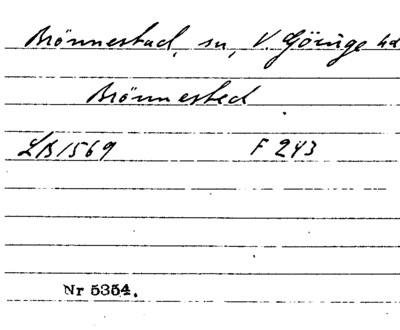 Brönnestad, sn, V. Göinge hd
Brönnested
LB 1569 F 243
Nr 5354.